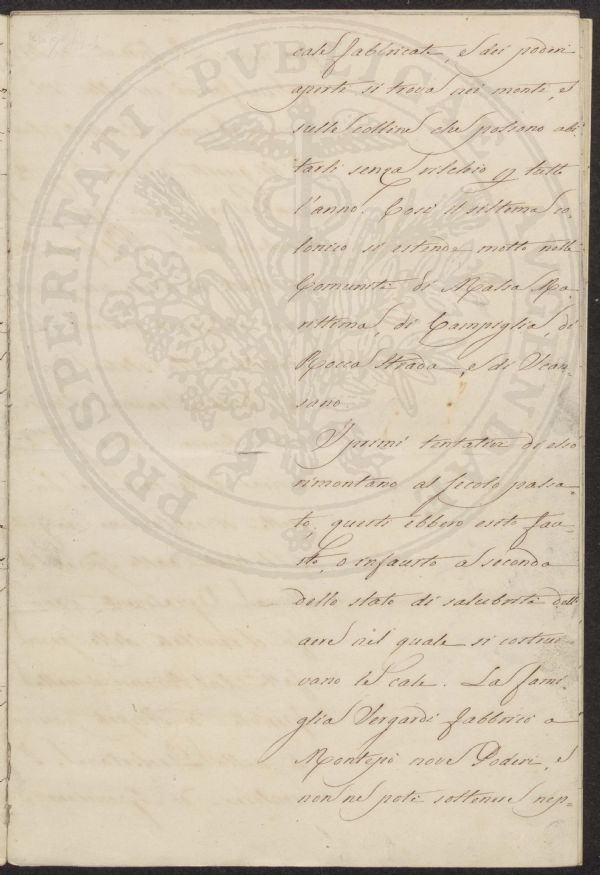 case fabbricate, e dei poderi
aperti si trova nei monti, e
sulle colline che possano abi-
tarsi senza rischio p tutto
l'anno. Così il sistema co-
lonico si estende molto nelle
Comunità di Massa Ma-
rittima, di Campiglia, di
Rocca Strada, e di Scan-
sano.
I primi tentativi di esso
rimontano al secolo passa-
to, questi ebbero esito fau-
sto, o infausto a seconda
dello stato di salubrità dell'
aere nel quale si costrui-
vano le case. La fami-
glia Sergardi fabbricò a
Montepò nove Poderi, e
non ne potè sottenere nep-
PROSPERITATI PVBLICAE AVGENDAE